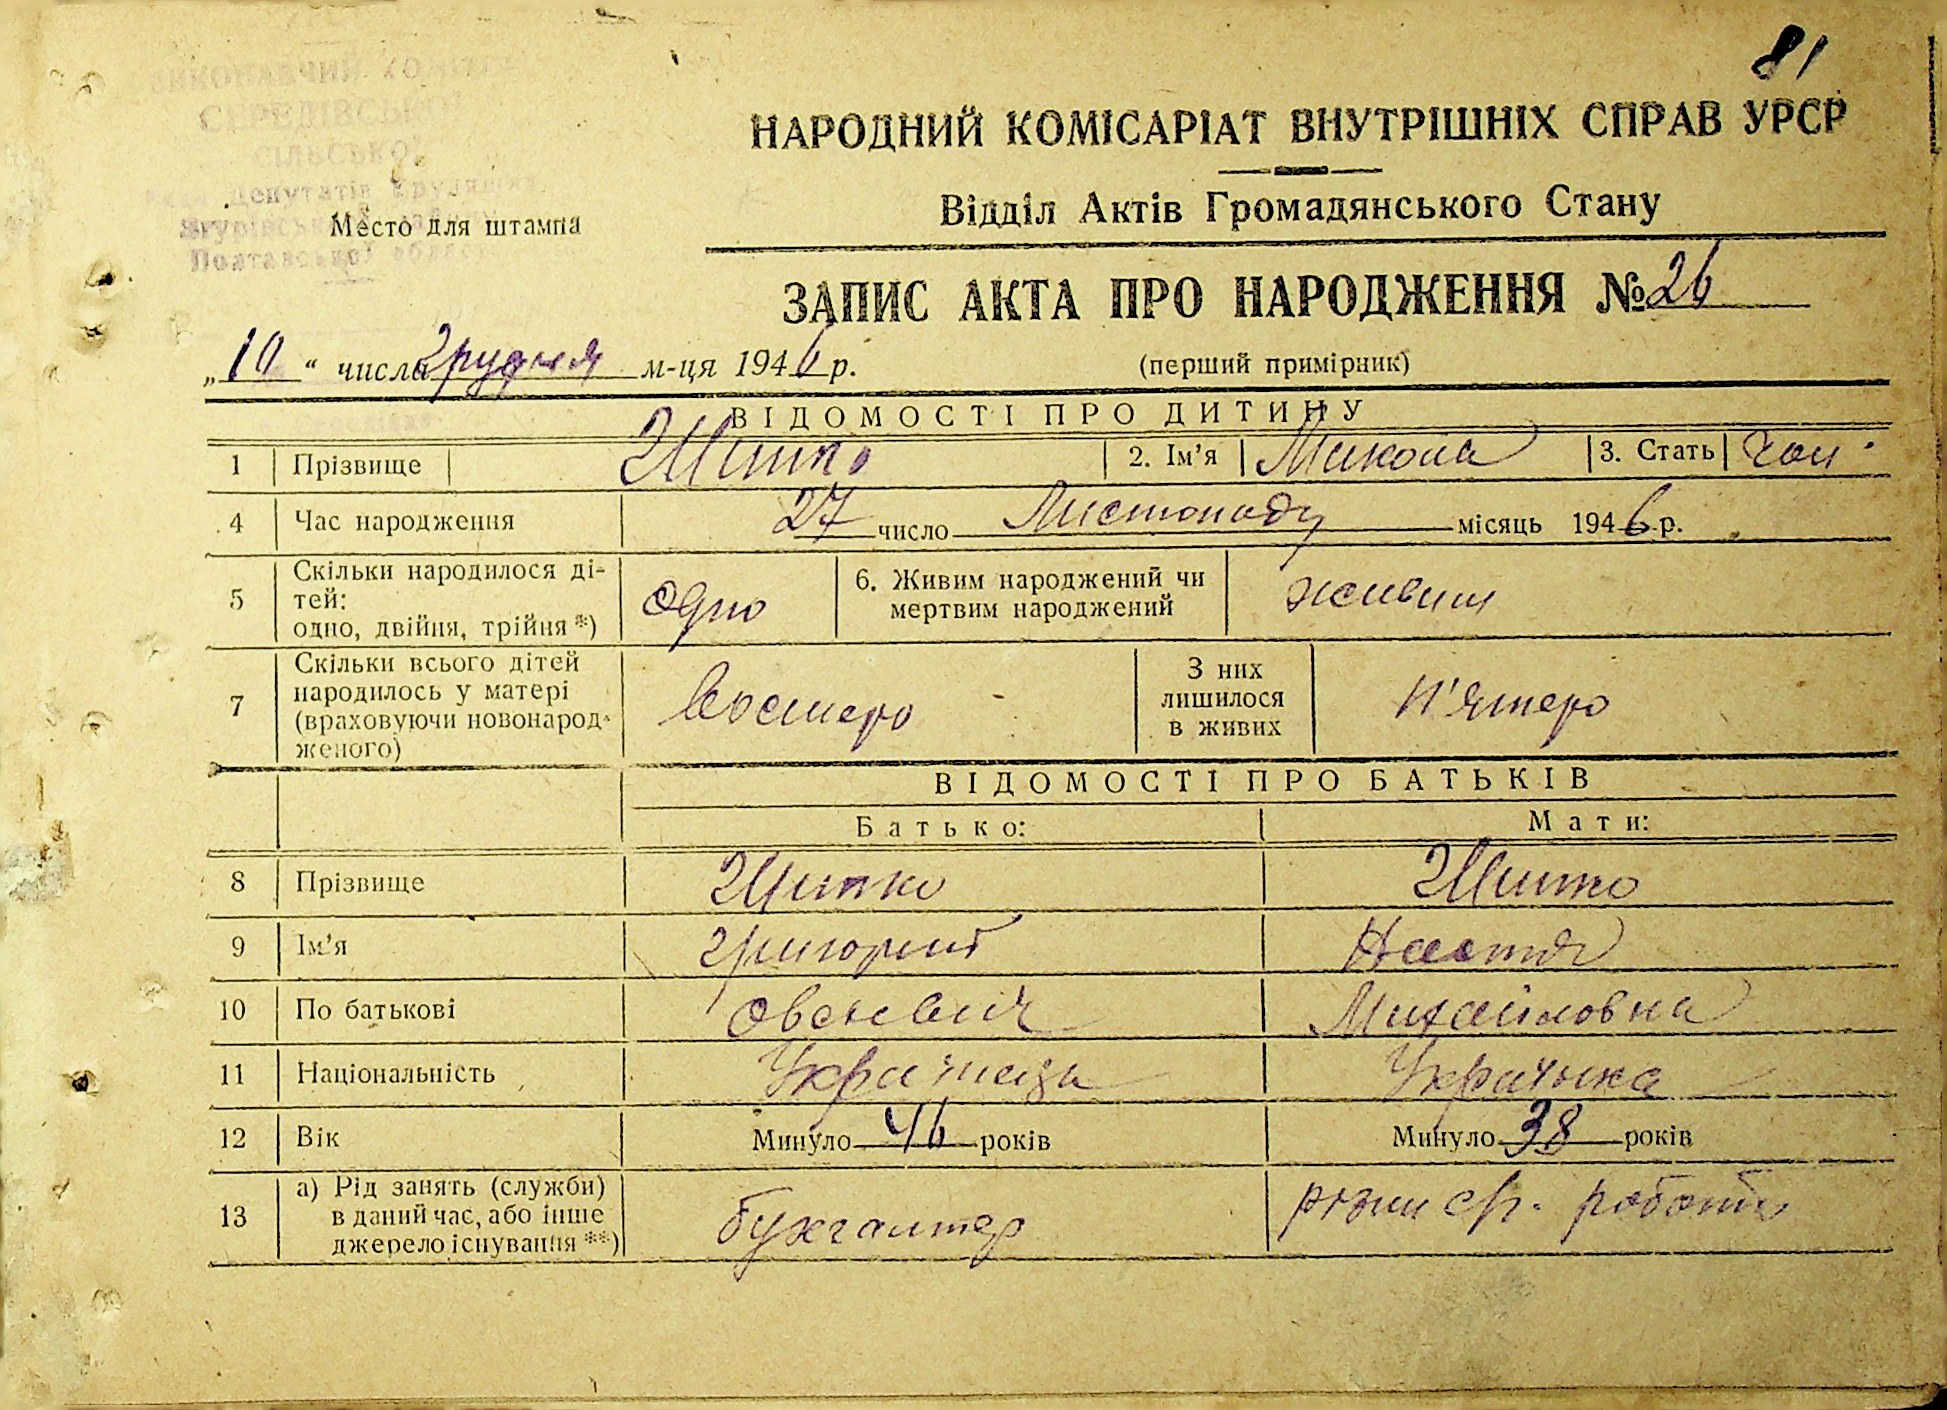 81
ВИКОНАВЧИЙ КОМІТЕТ
СЕРЕДІВСЬКОЇ
СІЛЬСЬКОЇ
Ради депутатів трудящих
Полтавської області
Место для штампа
НАРОДНИЙ КОМІСАРІАТ ВНУТРІШНІХ СПРАВ УРСР
Відділ Актів Громадянського Стану
ЗАПИС АКТА ПРО НАРОДЖЕННЯ № 26
„10“ числа Грудня м-ця 1946 р. (перший примірник)
ВІДОМОСТІ ПРО ДИТИНУ
1 Прізвище 2. Ім’я Микола 3. Стать чол.
4 Час народження 27 число Листопаду місяць 1946 р.
5 Скільки народилося ді-
тей:
одно, двійня, трійня *) одно 6. Живим народжений чи
мертвим народжений живим
7 Скільки всього дітей
народилось у матері
(враховуючи новонарод-
женого) Восьмеро З них
лишилося
в живих П'ятеро
ВІДОМОСТІ ПРО БАТЬКІВ
Батько: Мати:
8 Прізвище
9 Ім’я Григорий Настя
10 По батькові Овсієвич Михайловна
11 Національність Українець Українка
12 Вік Минуло 46 років Минуло 38 років
13 а) Рід занять (служби)
в даний час, або інше
джерело існування **) бухгалтер різни с/г. роботи